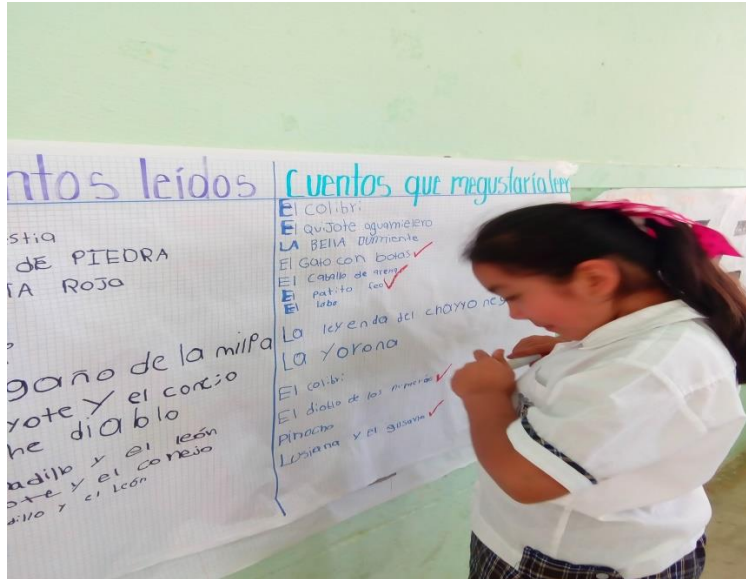 ntos leídos
stia
dE PIEDRA
TA ROJA
gaño de la milpa
yote y el conejo
he diablo
adillo y el león
ote y el conejo
dillo y el león
Cuentos que megustaría leer
El colibri
El Quijote aguamielero
LA BEllA Durmiente
El Gato con botas
El caballo de arena
El Patito feo
El lobo
La leyenda del charro neg
La Yorona
El colibri
El diablo de los
Pinocho
Lusiana y el gusano